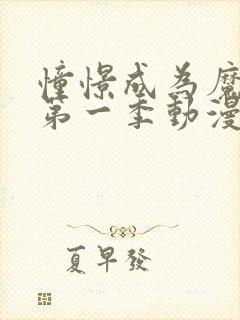 憧憬成為魔
第一季動漫
夏早發